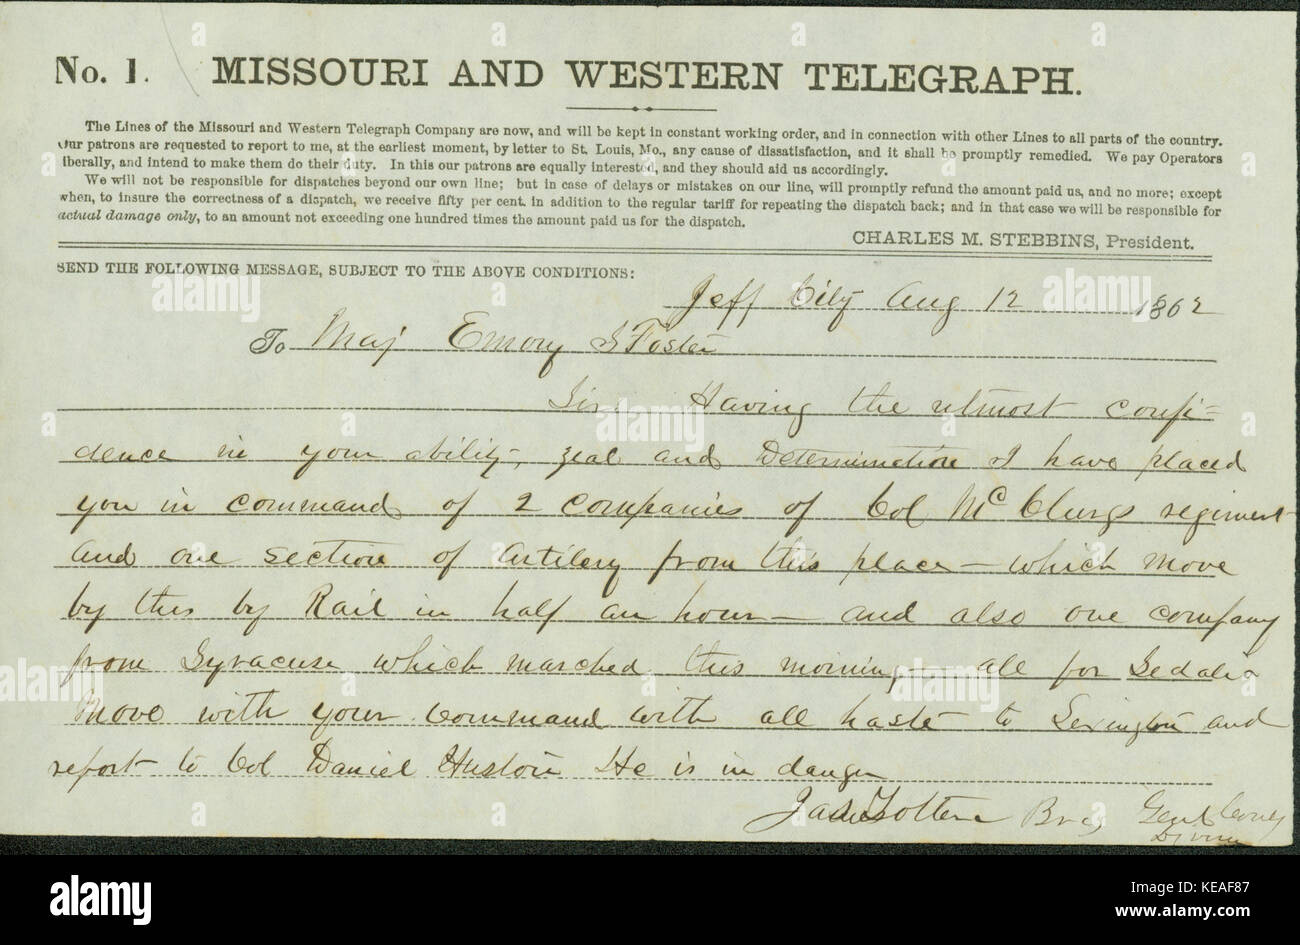 No. 1. MISSOURI AND WESTERN TELEGRAPH.
The Lines of the Missouri and Western Telegraph Company are now, and will be kept in constant working order, and in connection with other Lines to all parts of the country.
Our patrons are requested to report to me, at the earliest moment, by letter to St. Louis, Mo., any cause of dissatisfaction, and it shall be promptly remedied. We pay Operators
liberally, and intend to make them do their duty. In this our patrons are equally interested, and they should aid us accordingly.
We will not be responsible for dispatches beyond our own line; but in case of delays or mistakes on our line, will promptly refund the amount paid us, and no more; except
when, to insure the correctness of a dispatch, we receive fifty per cent. in addition to the regular tariff for repeating the dispatch back; and in that case we will be responsible for
actual damage only, to an amount not exceeding one hundred times the amount paid us for the dispatch.
CHARLES M. STEBBINS, President.
SEND THE FOLLOWING MESSAGE, SUBJECT TO THE ABOVE CONDITIONS:
Jeff City Aug 12 1862
To Maj Emory S Foster
Sir Having the utmost confi-
dence in your ability, zeal and Determination I have placed
you in command of 2 companies of Col McClurgs regiment
and one section of Artilery from this place – which move
by this by Rail in half an hour – and also one company
from Syracuse which marched this morning – all for Sedalia
Move with your command with all haste to Lexington and
report to Col Daniel Huston He is in danger
Jas Totten Brig Genl Comdg
Division
alamy
Image ID: KEAF87
www.alamy.com